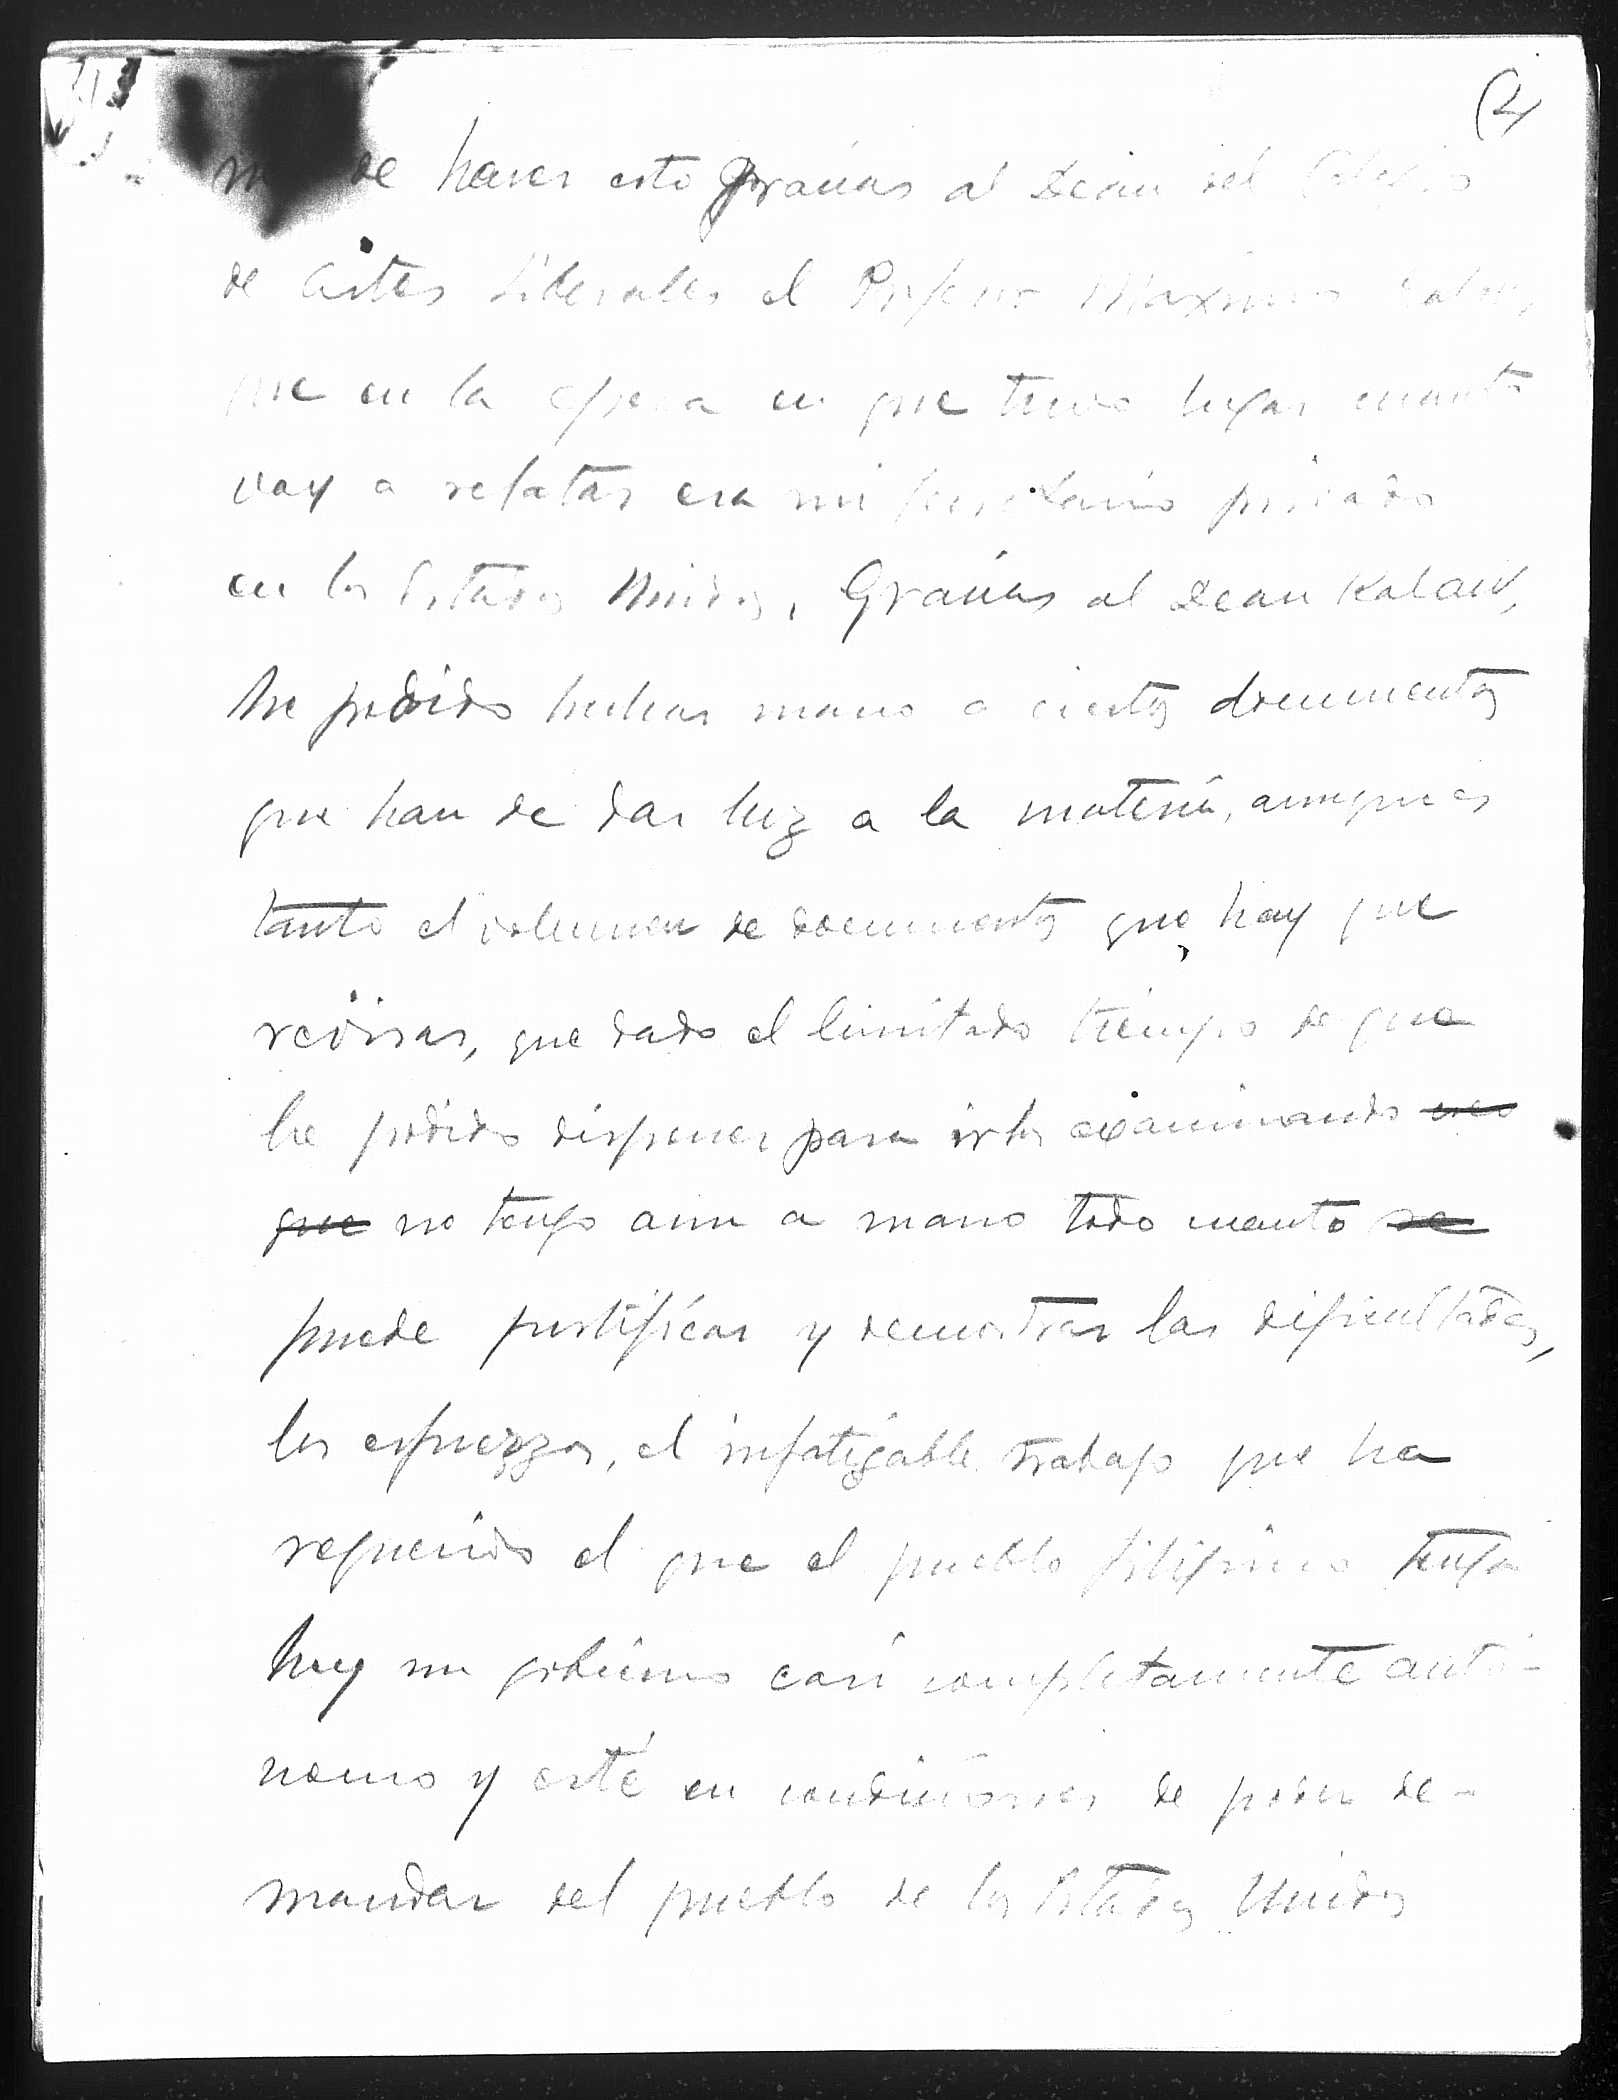 (4
de hacer esto Gracias al Dean del Colegio
de Artes Liberales el Profesor Maximo Kalaw,
que en la epoca en que tuvo lugar cuanto
voy a relatar era mi secretario privado
en los Estados Unidos, Gracias al Dean Kalaw,
he podido hechar mano a ciertos documentos
que han de dar luz a la materia, aunque es
tanto el volumen de documentos que, hay que
revisar, que dado el limitado tiempo de que
he podido disponer para irlos examinando
que no tengo aun a mano todo cuanto se
puede justificar y demostrar las dificultades,
los esfuerzos, el infatigable trabajo que ha
requerido el que el pueblo filipino tenga
hoy un gobierno casi completamente autó-
nomo y esté en condiciones de poder de-
mandar del pueblo de los Estados Unidos